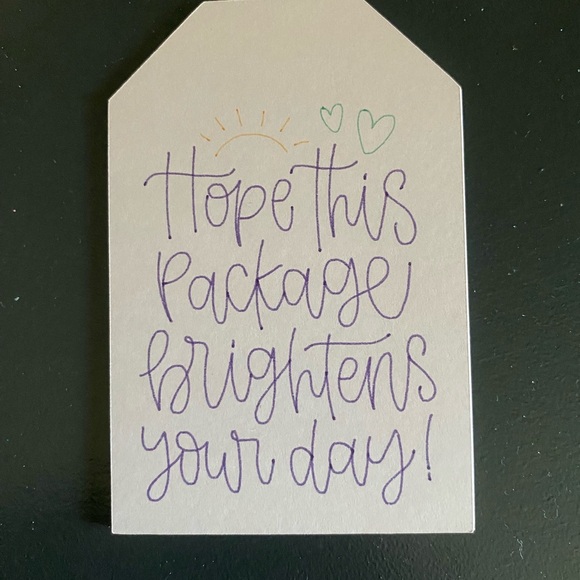 Hope this
Package
brightens
your day!